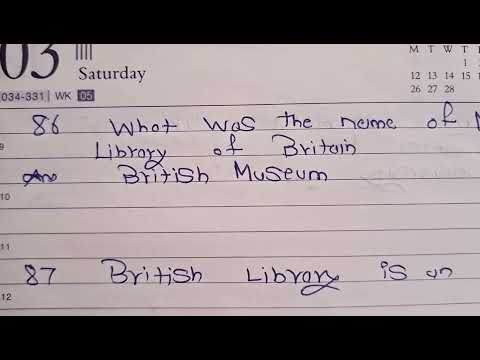 03 Saturday
034-331 | WK 05
M T W T
1
12 13 14 15
26 27 28
86 What was the name of
9
Library of Britain
Ans British Museum
10
11
87 British Library is an
12